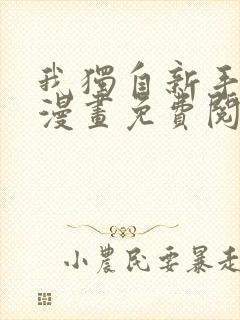 我獨自新手
漫畫免費閱
小農民要暴走